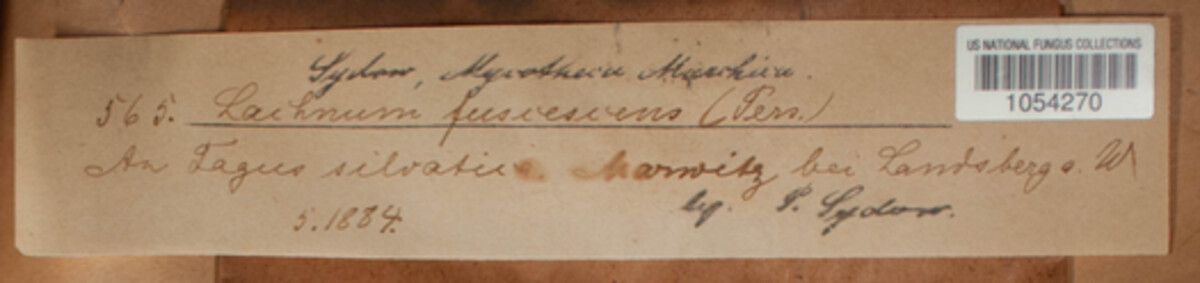 Sydow, Mycotheca Marchica.
565. Lachnum fuscescens (Pers.)
An Fagus silvatica. Marwitz bei Landsberg a. W
5.1884.
leg. P. Sydow.
US NATIONAL FUNGUS COLLECTIONS
1054270